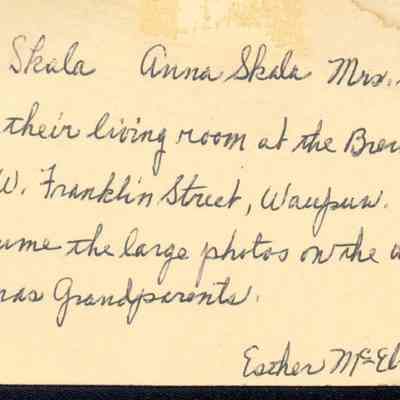 Skala Anna Skala Mrs.
their living room at the Brew
W. Franklin Street, Waupun.
ume the large photos on the w
nas Grandparents.
Esther McEl